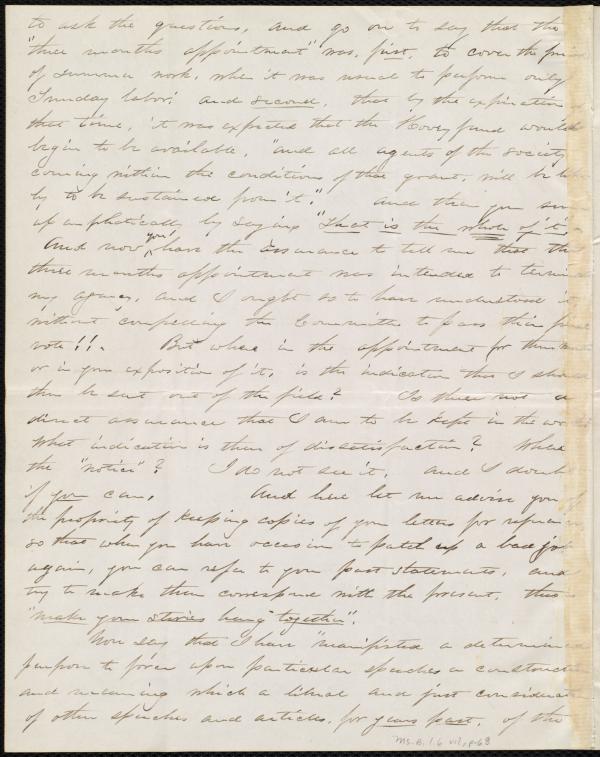 to ask the question, and go on to say that the
"three months appointment" was, first, to cover the
of summer work, when it was usual to perform only
Sunday labor; and second, that by the expiration of
that time, it was expected that the Hovey fund would
begin to be available, "and all agents of the society
coming within the conditions of that grant, will be
ly to be sustained from it." And then you
up emphatically by saying "that is the whole of it".
And now you have the assurance to tell me that the
three months appointment was intended to
my agency, and I ought so to have understood it,
without compelling the Committee to pass their
vote!!. But where in the appointment for three
or in your exposition of it, is the indication that I
then be sent out of the field? Is there not a
direct assurance that I am to be kept in the
What indication is there of dissatisfaction? Where
the "notice"? I do not see it, and I doubt
if you can. And here let me advise you of
the propriety of keeping copies of your letters for
so that when you have occasion to patch up a bad job
again, you can refer to your past statements, and
try to make them correspond with the present, thus
"make your stories hang together".
You say that I have "manifested a determined
purpose to force upon particular speeches a
and meaning which a liberal and just
of other speeches and articles, for years past, of the
Ms. B. 1. 6 p. 68